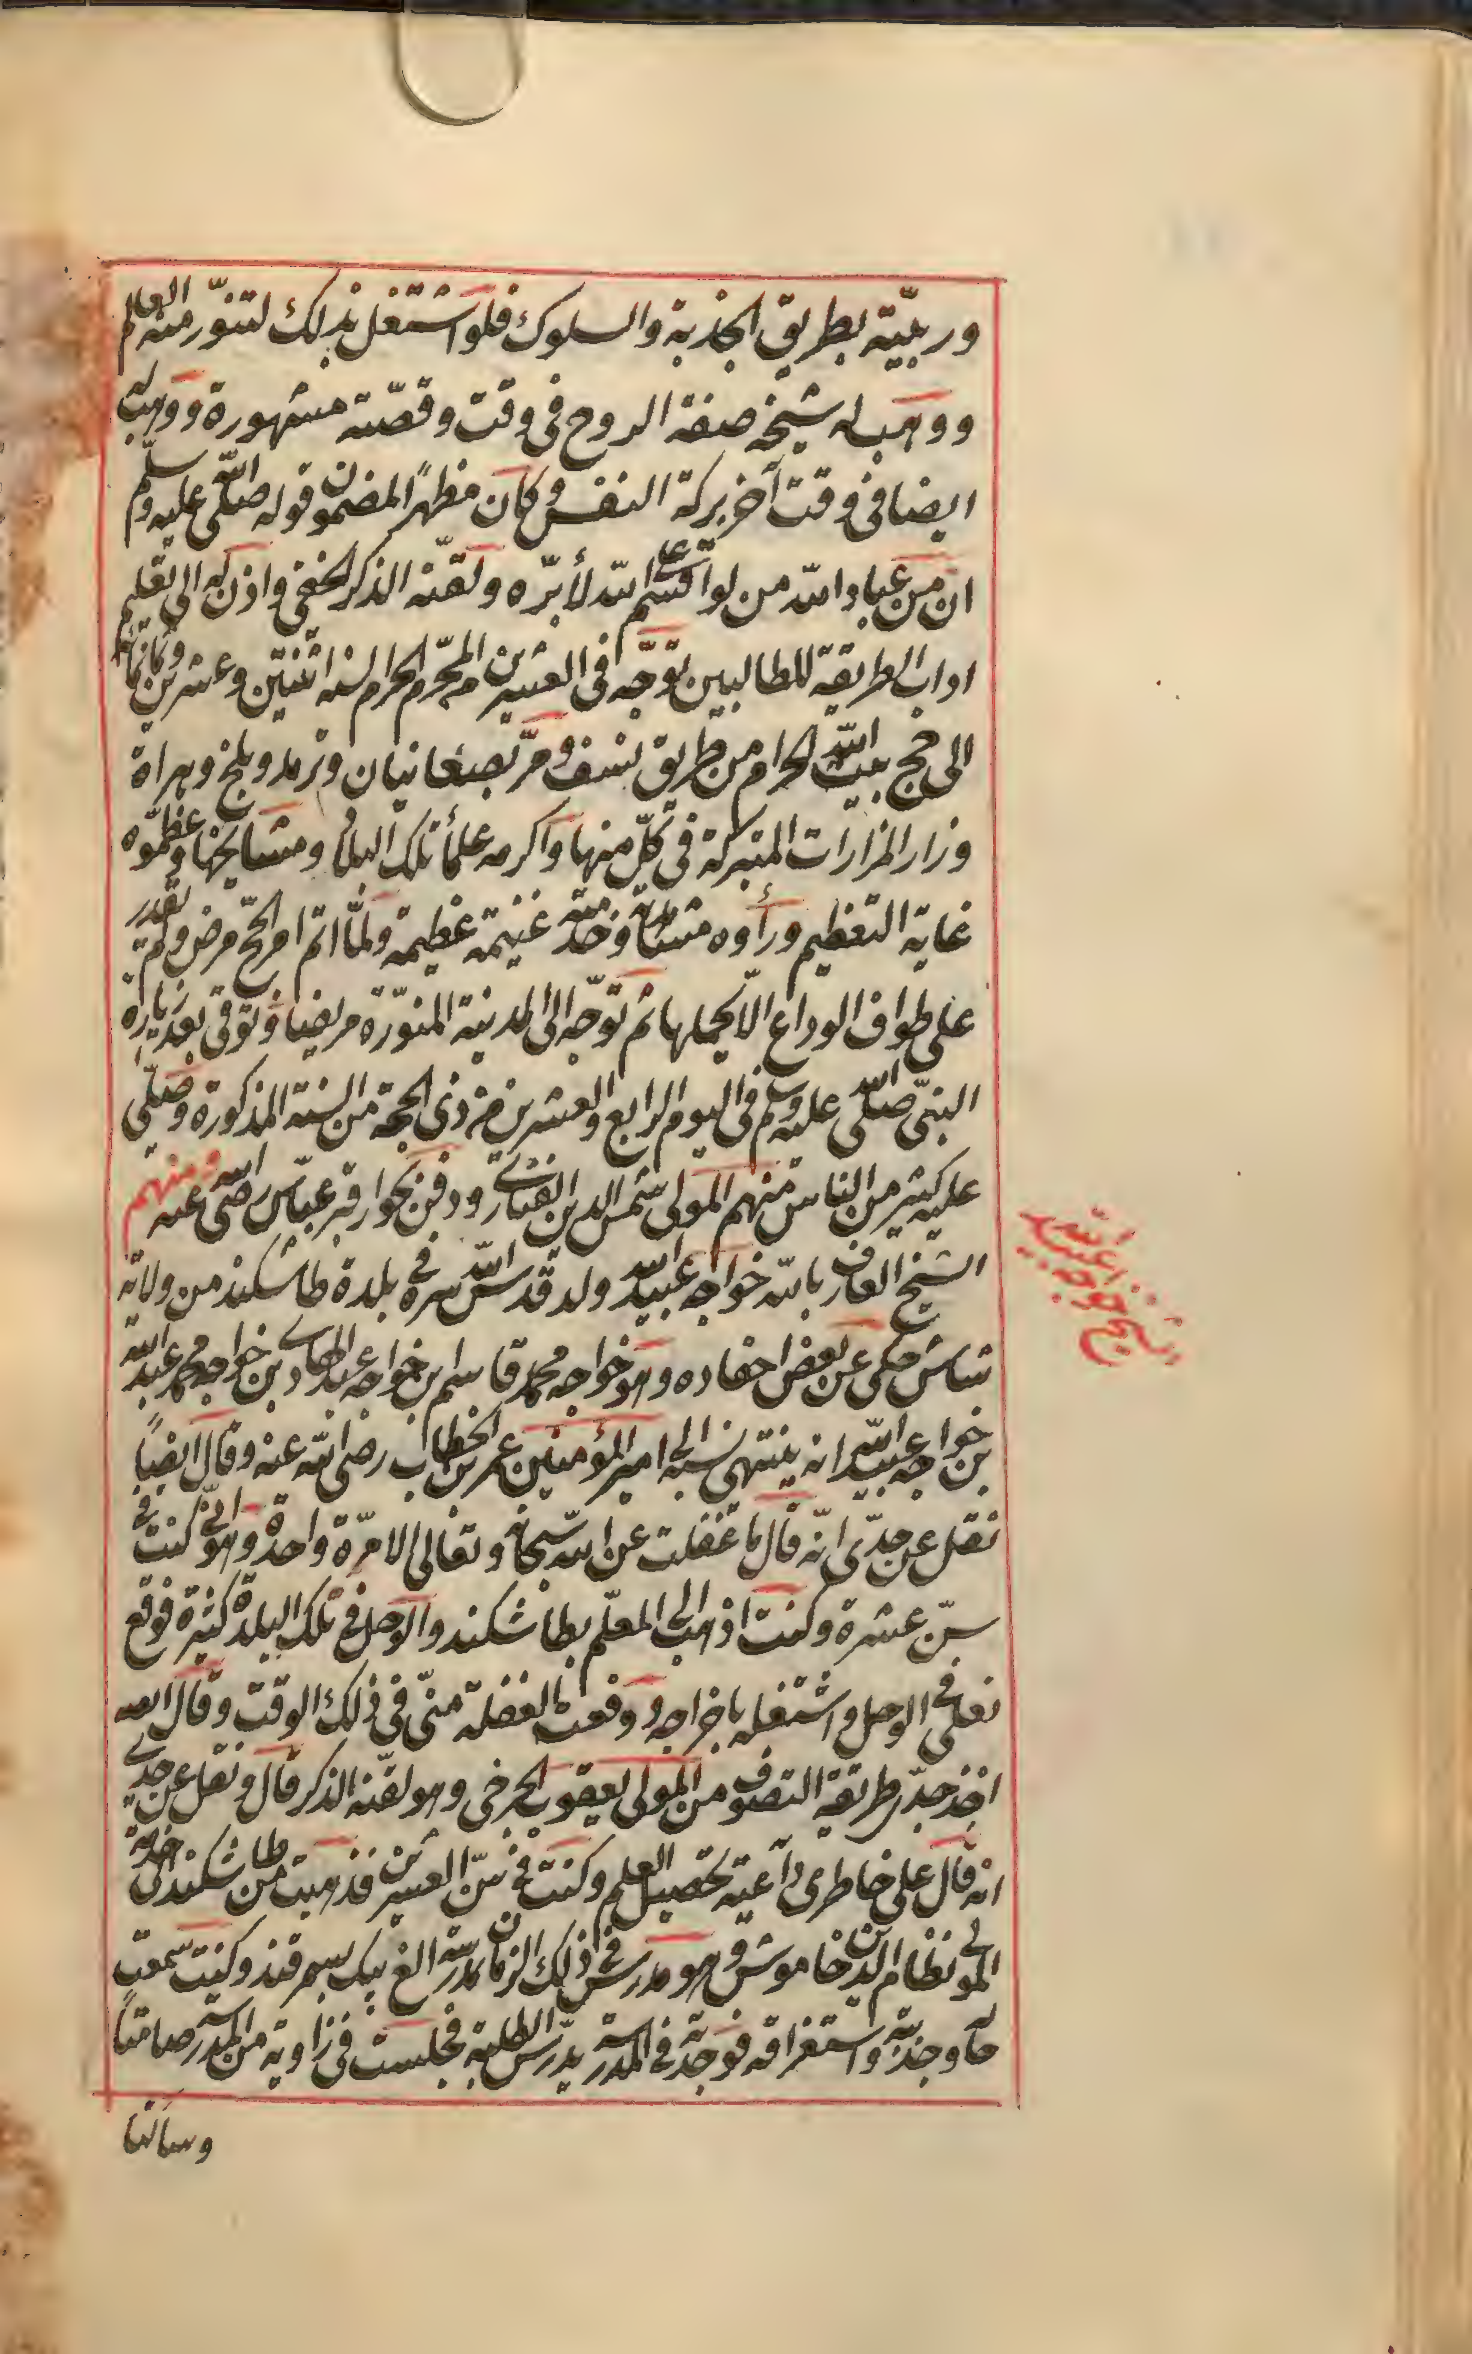 وربيّته بطريق الجذبة والسلوك فلو اشتغل بذلك لتنوّر منه العالم
ووهب له شيخه صفة الروح فى وقت وقصّته مشهورة ووهب له
ايضا فى وقت آخر بركة النفس وكان مظهرًا لمضمون قوله صلّى الله عليه وسلّم
ان من عباد الله من لو اقسم على الله لأبرّه ولقّنه الذكر الخفى واذن له الى تعليم
اداب الطريقة للطالبين توجّه فى العشرين المحرّم الحرام لسنه اثنتين وعشرين وثمانمائة
الى حج بيت الله الحرام من طريق نسف ومرّ بصغانيان وترمد وبلخ وهراة
وزار المزارات المتبركة فى كلّ منها واكرمه علمأ تلك البلاد ومشايخها وعظّموه
غاية التعظيم ورأوه مشاهدته وخدمته غنيمة عظيمة ولمّا اتم امر الحجّ مرض ولم يقدر
على طواف الوداع الّا بحملها ثم توجّه الى المدينة المنوّرة مريضا وتوفى بعد زيارة
النبىّ صلّى الله عليه وسلم فى اليوم الرابع والعشرين من ذى الحجة من السنة المذكورة وصلّى
عليه كثير من الناس منهم المولى شمس الدين الفنارى ودفن بجوار قبر عبّاس رضى الله عنه ومنهم
الشيخ العارف بالله خواجه عبيد الله ولد قدّس الله سره فى بلدة طاشكند من ولاية
شاش حكى عن بعض احفاده وهو خواجه محمد قاسم بن خواجه عبد الهادى بن خواجه محمد عبد الله
بن خواجه عبيد الله انه ينتهى نسبه الى امير المؤمنين عمر بن الخطاب رضى الله عنه وقال ايضًا
نقل عن جدّى انّه قال ما غفلت عن الله سبحانه وتعالى الا مرّة واحدة وهو انّى كنت فى
سنّ عشرة وكنت اذهب الى المعلّم بطاشكند والوحل فى تلك البلدة كثيرة فوقع
نعلى فى الوحل واشتغلت باخراجه ووقعت الغفلة منّى فى ذلك الوقت وقال ايضا
اخذ جدّى طريقة التصوف من المولى يعقوب الجرخى وهو لقّنه الذكر قال ونقل عن جدى
انه قال على خاطرى داعية تحصيل العلم وكنت فى سنّ العشرين فذهبت من طاشكند الى خدمة
المولى نظام الدين خاموش وهو مدرس فى ذلك الزمان بمدرسة الغ بيك بسمرقند وكنت سمعت
حاله وجذبته واستغراقه فوجدته فى المدرسة يدرّس الطلبة فجلست فى زاوية من المدرسة صامتاً
وسالنا
شيخ خواجه عبيد الله